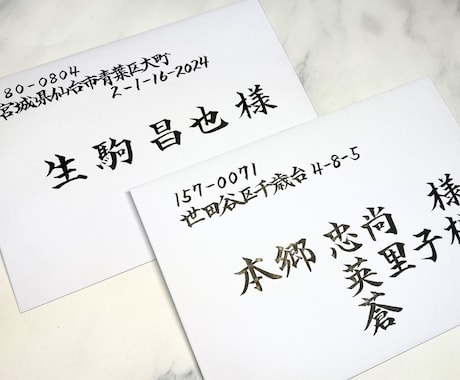 80-0804
宮城県仙台市青葉区大町
2-1-16-2024
生駒昌也様
157-0071
世田谷区千歳台4-8-5
本郷 忠尚 様
英里子様
蒼